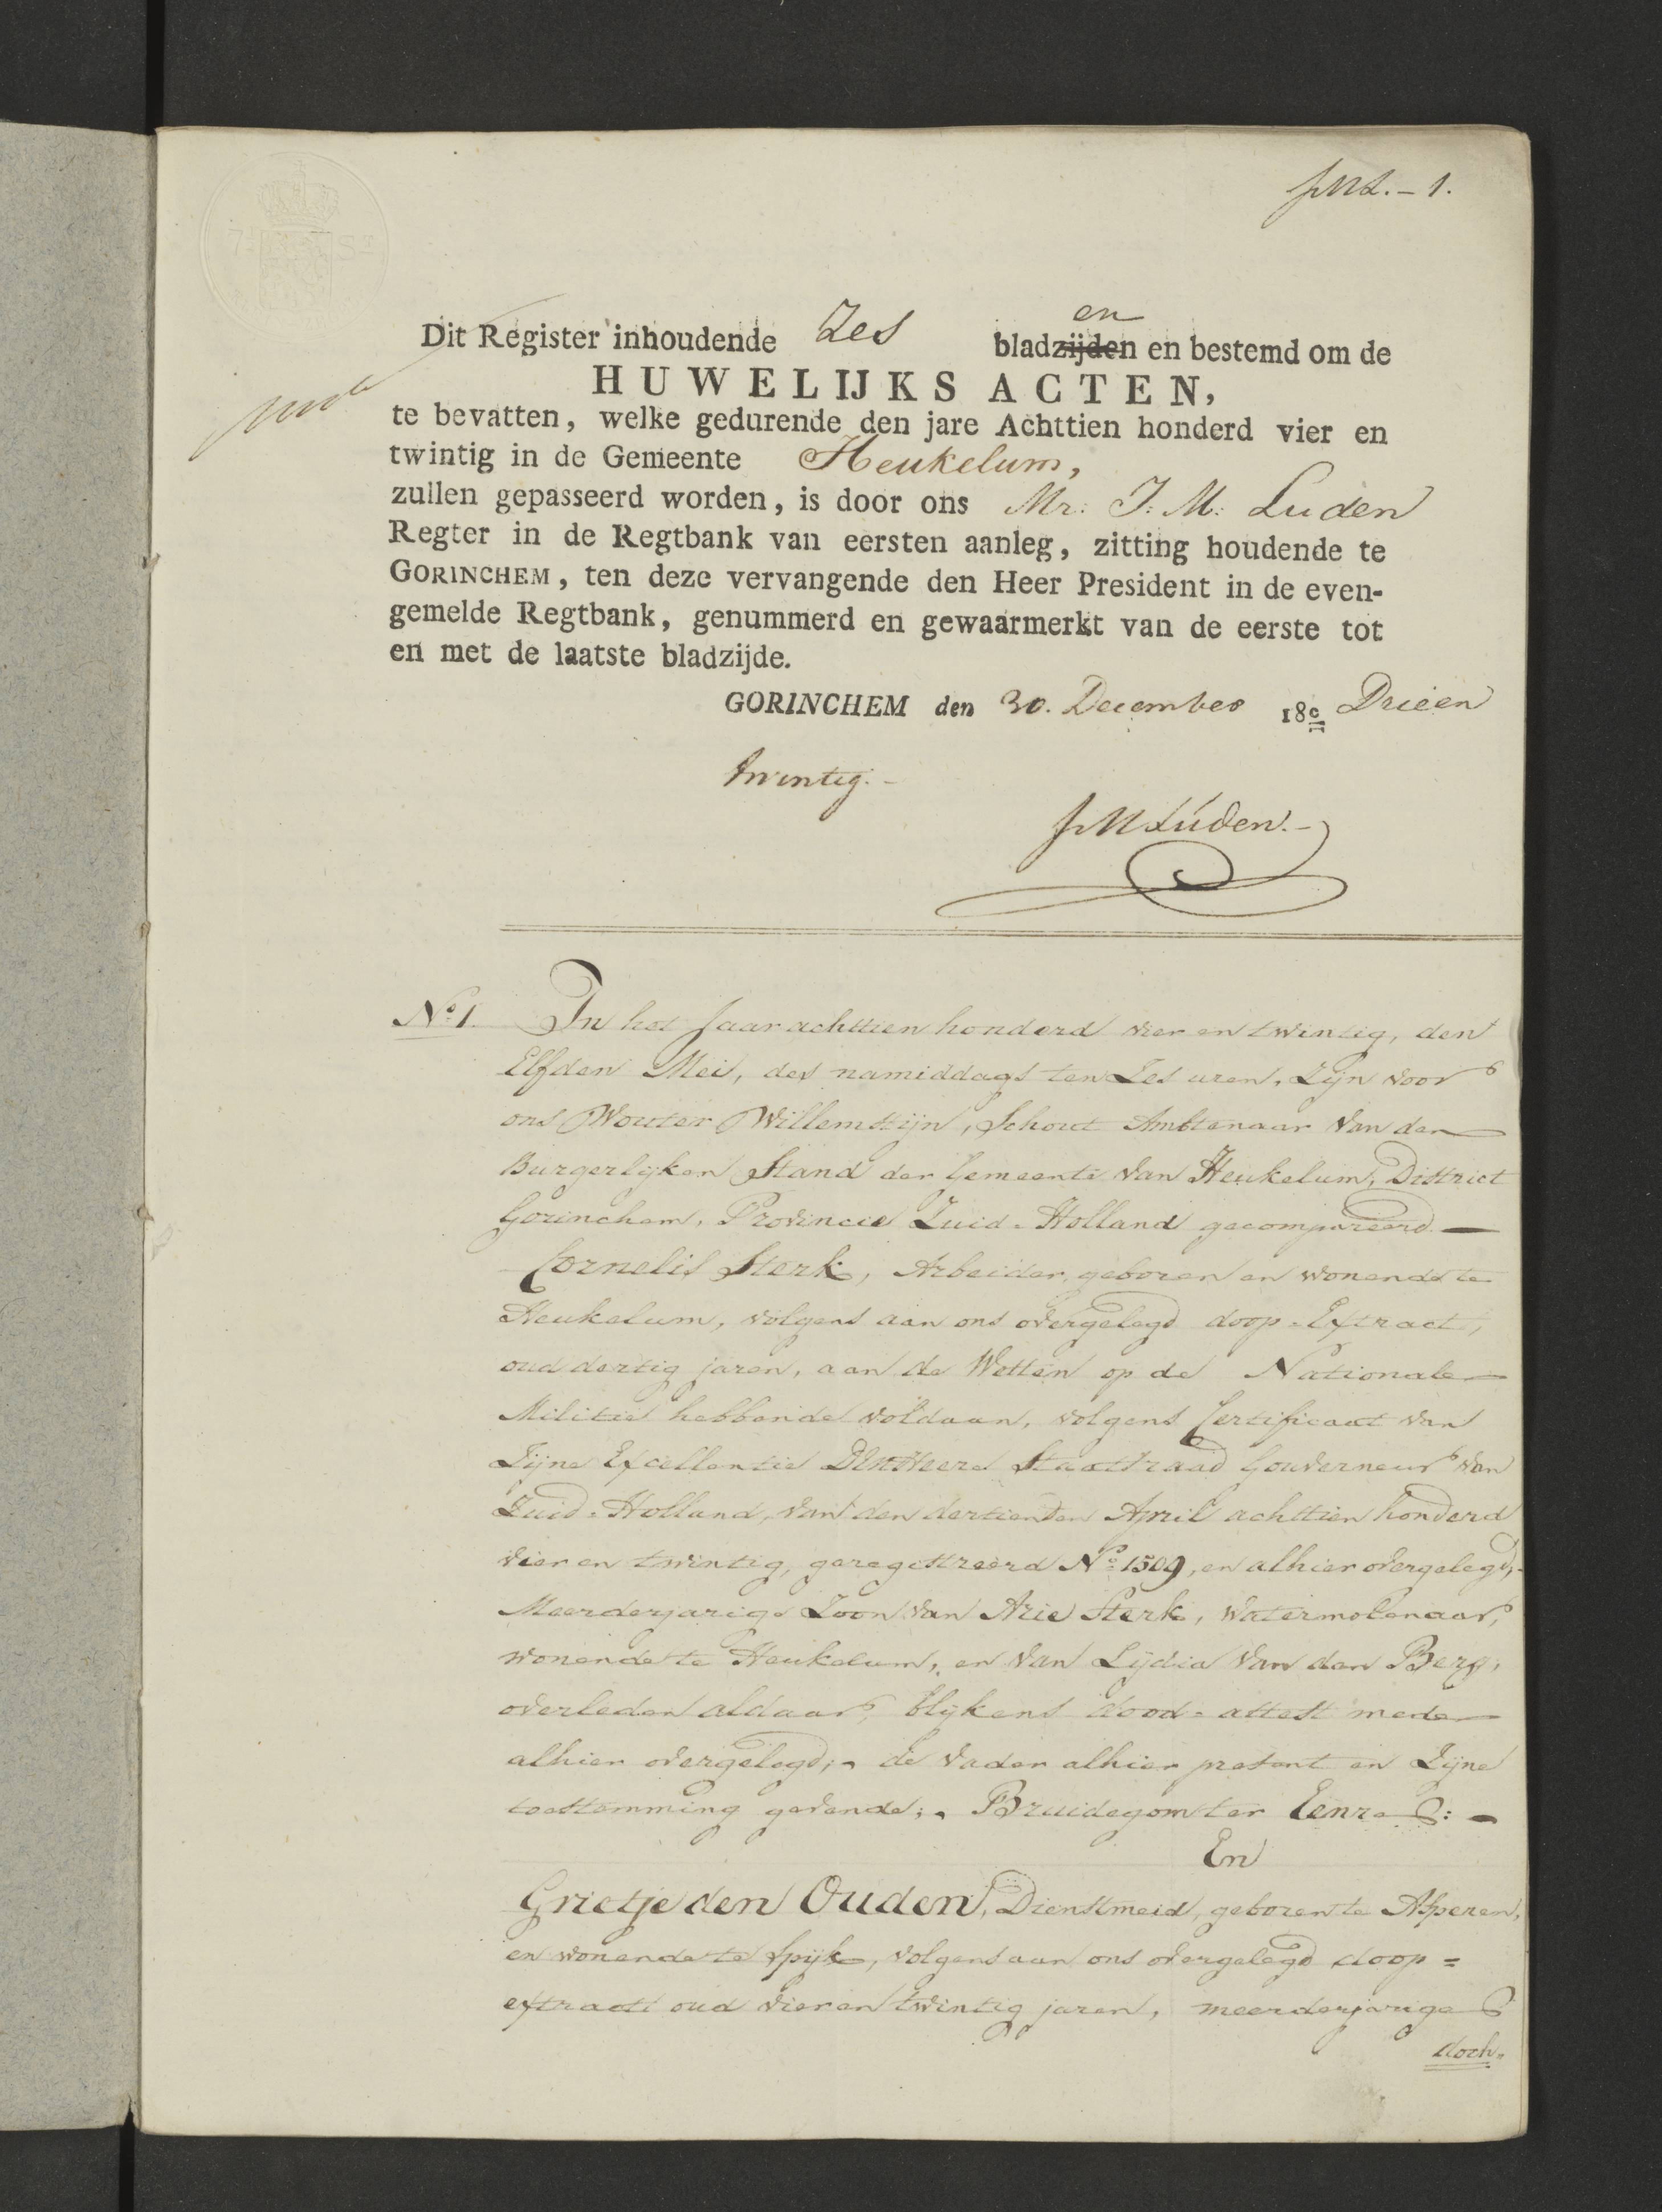 JML. - 1.
Dit Register inhoudende Zes bladzijden en bestemd om de
en
HUWELIJKS ACTEN,
te bevatten, welke gedurende den jare Achttien honderd vier en
twintig in de Gemeente Heukelum,
zullen gepasseerd worden, is door ons Mr: J: M: Luden
Regter in de Regtbank van eersten aanleg, zitting houdende te
GORINCHEM, ten deze vervangende den Heer President in de even-
gemelde Regtbank, genummerd en gewaarmerkt van de eerste tot
en met de laatste bladzijde.
GORINCHEM den 30. December 18c Drieen
twintig. -
JM Luden. -
No. 1. In het Jaar achttien honderd vier en twintig, den
Elfden Mei, des namiddags ten Zes uren, Zijn voor
ons Wouter Willemstijn, Schout Ambtenaar van den
Burgerlijken Stand der Gemeente van Heukelum, District
Gorinchem, Provincie Zuid-Holland gecompareerd. —
Cornelis Sterk, Arbeider, geboren en wonende te
Heukelum, volgens aan ons overgelegd doop=Extract,
oud dertig jaren, aan de Wetten op de Nationale
Militie hebbende voldaan, volgens Certificaat van
Zijne Excellentie Den Heere Staatsraad Gouverneur van
Zuid-Holland, van den dertienden April achttien honderd
vier en twintig, geregistreerd No. 1509, en alhier overgelegd,
Meerderjarige Zoon van Arie Sterk, Watermolenaar,
wonende te Heukelum, en van Lijdia van den Berg,
overleden aldaar, blijkens dood=attest mede
alhier overgelegd; de Vader alhier present en Zijne
toestemming gevende; Bruidegom ter Eenre: -
En
Grietje den Ouden, Dienstmeid, geboren te Asperen,
en wonende te Spijk, volgens aan ons overgelegd doop=
extract oud vier en twintig jaren, meerderjarige
doch=